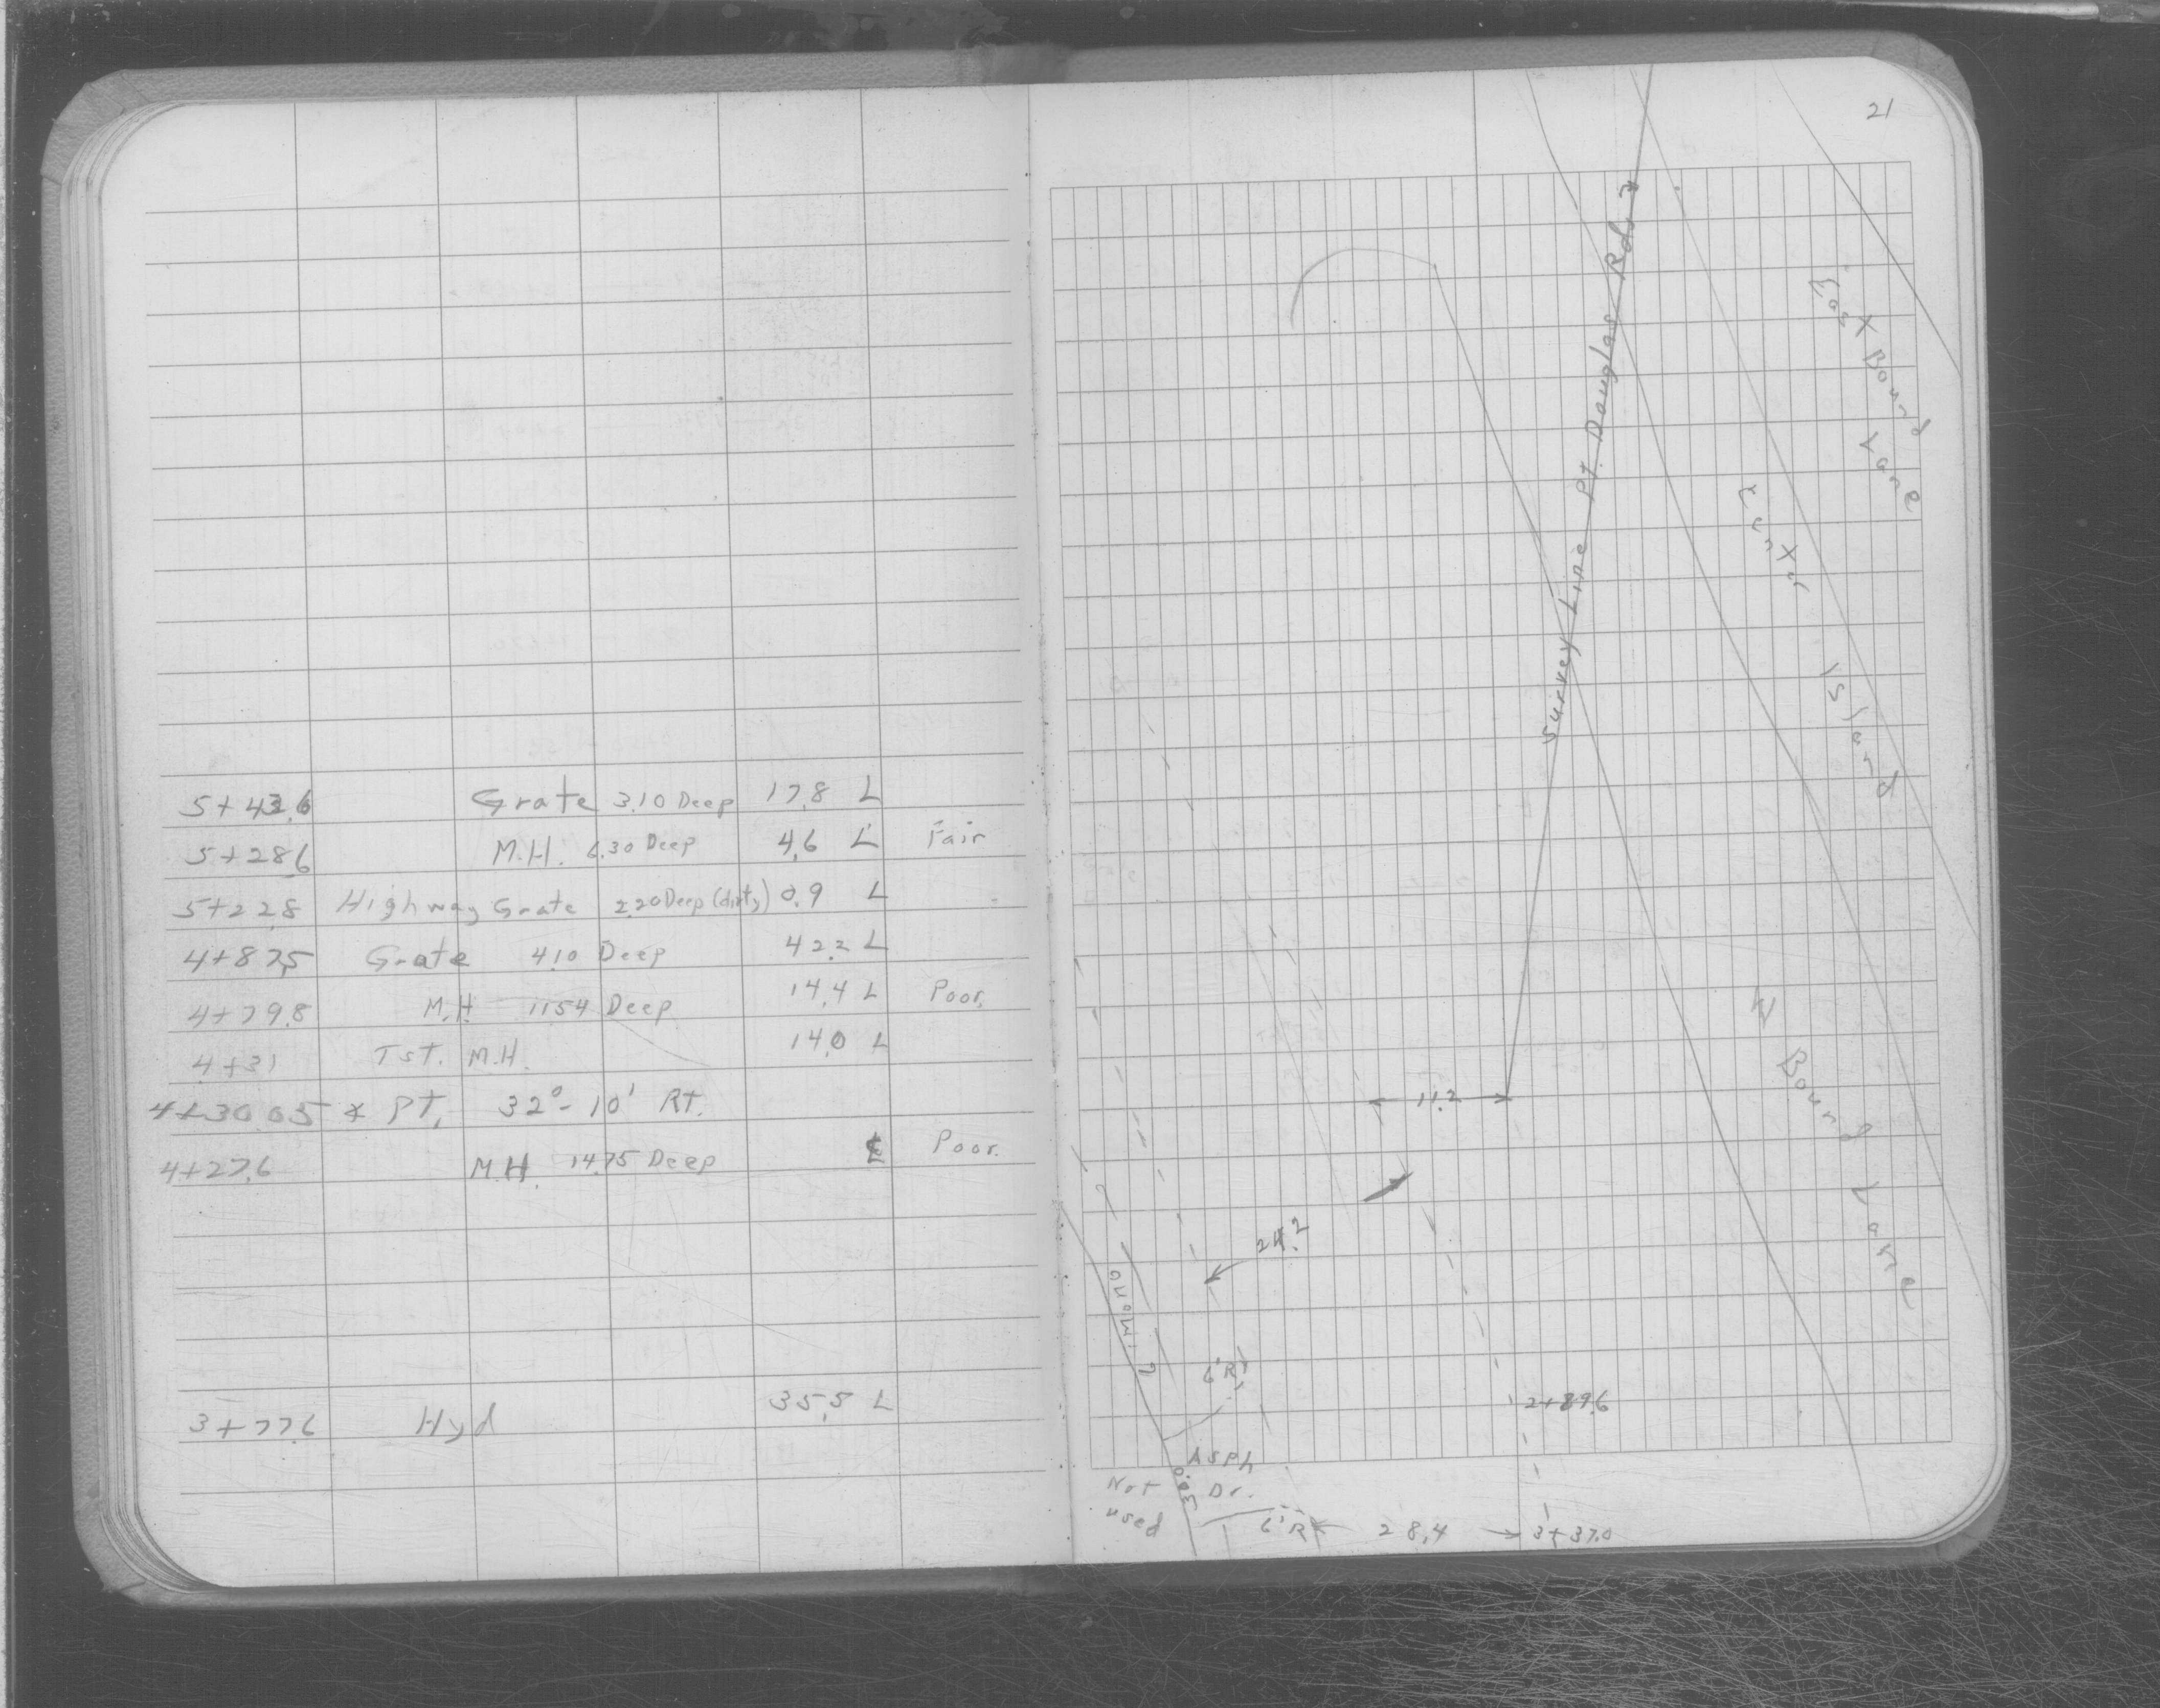 5+43.6 Grate 3.10 Deep 17.8 L
5+28.6 M.H. 6.30 Deep 4.6 L Fair
5+22.8 Highway Grate 2.20 Deep (dirty) 0.9 L
4+87.5 Grate 4.10 Deep 42.2 L
4+79.8 M.H. 11.54 Deep 14.4 L Poor.
4+31 Tst. M.H. 14.0 L
4+30.05 P.T. 32°-10' Rt.
4+27.6 M.H. 14.75 Deep Poor.
3+77.6 Hyd 35.5 L
21
Survey Line Pt. Douglas Rd.
Bound Lane
Island
Bound Lane
11.2
24.2
Mono
6'R
2+89.6
Asph
Dr.
30.0
Not
used
6'R
28.4
3+37.0